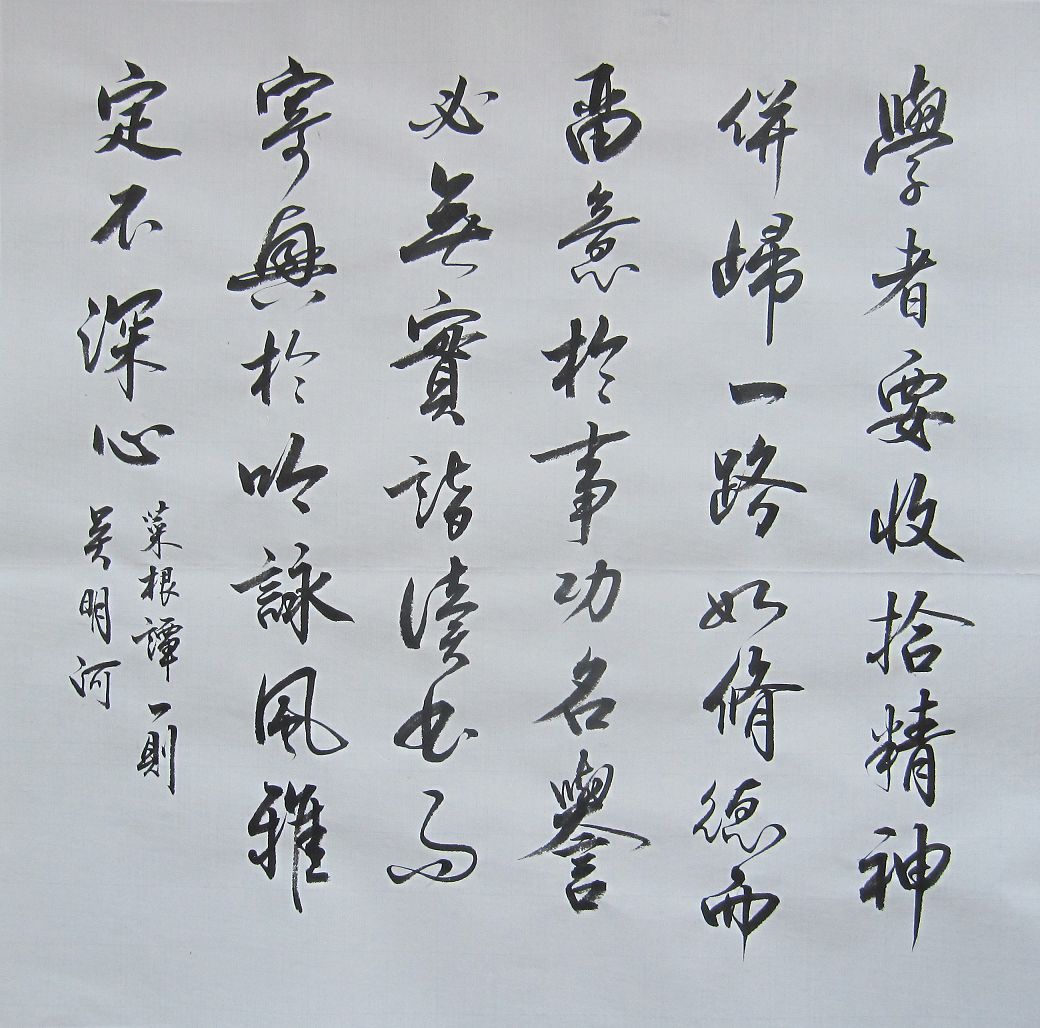 學者要收拾精神
併歸一路如脩德而
留意於事功名譽
必無實詣讀书而
寄興於吟詠風雅
定不深心
菜根譚一則
吳明河